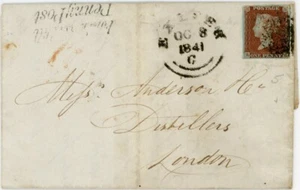 Penny Post
EXETER
OC 8
1841
C
POSTAGE
Messrs Anderson & Co
Distillers
London